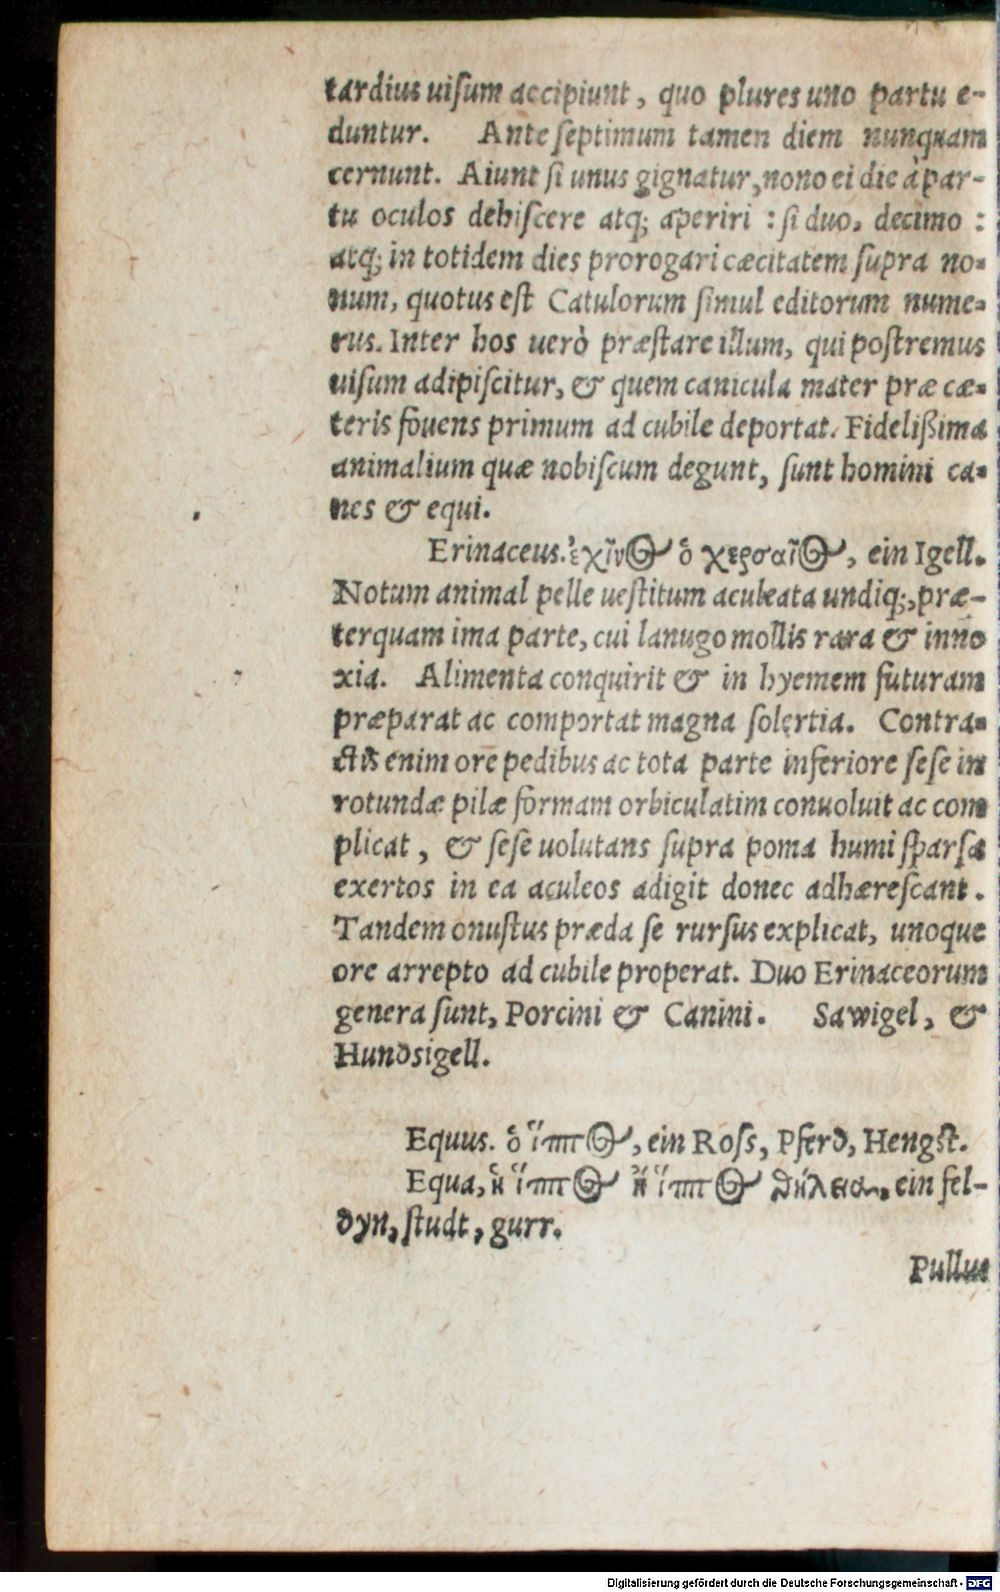 tardius uiſum accipiunt, quo plures uno partu e-
duntur. Ante ſeptimum tamen diem nunquam
cernunt. Aiunt ſi unus gignatur, nono ei die à par-
tu oculos dehiſcere atq; aperiri : ſi duo, decimo :
atq; in totidem dies prorogari cæcitatem ſupra no-
num, quotus eſt Catulorum ſimul editorum nume-
rus. Inter hos uerò præſtare illum, qui poſtremus
uiſum adipiſcitur, & quem canicula mater præ cæ-
teris fouens primum ad cubile deportat. Fideliſſima
animalium quæ nobiſcum degunt, ſunt homini ca-
nes & equi.
Erinaceus. ἐχῖνος ὁ χερσαῖος, ein Igell.
Notum animal pelle ueſtitum aculeata undiq;, præ-
terquam ima parte, cui lanugo mollis rara & inno
xia. Alimenta conquirit & in hyemem futuram
præparat ac comportat magna ſolertia. Contra-
ctis enim ore pedibus ac tota parte inferiore ſeſe in
rotundæ pilæ formam orbiculatim conuoluit ac com
plicat, & ſeſe uolutans ſupra poma humi ſparſa
exertos in ea aculeos adigit donec adhæreſcant.
Tandem onuſtus præda ſe rurſus explicat, unoque
ore arrepto ad cubile properat. Duo Erinaceorum
genera ſunt, Porcini & Canini. Sawigel, &
Hundsigell.
Equus. ὁ ἵππος, ein Roſs, Pferd, Hengſt.
Equa, ἡ ἵππος ἢ ἵππος θήλεια, ein fel-
dyn, ſtudt, gurr.
Pullus
Digitalisierung gefördert durch die Deutsche Forschungsgemeinschaft - DFG